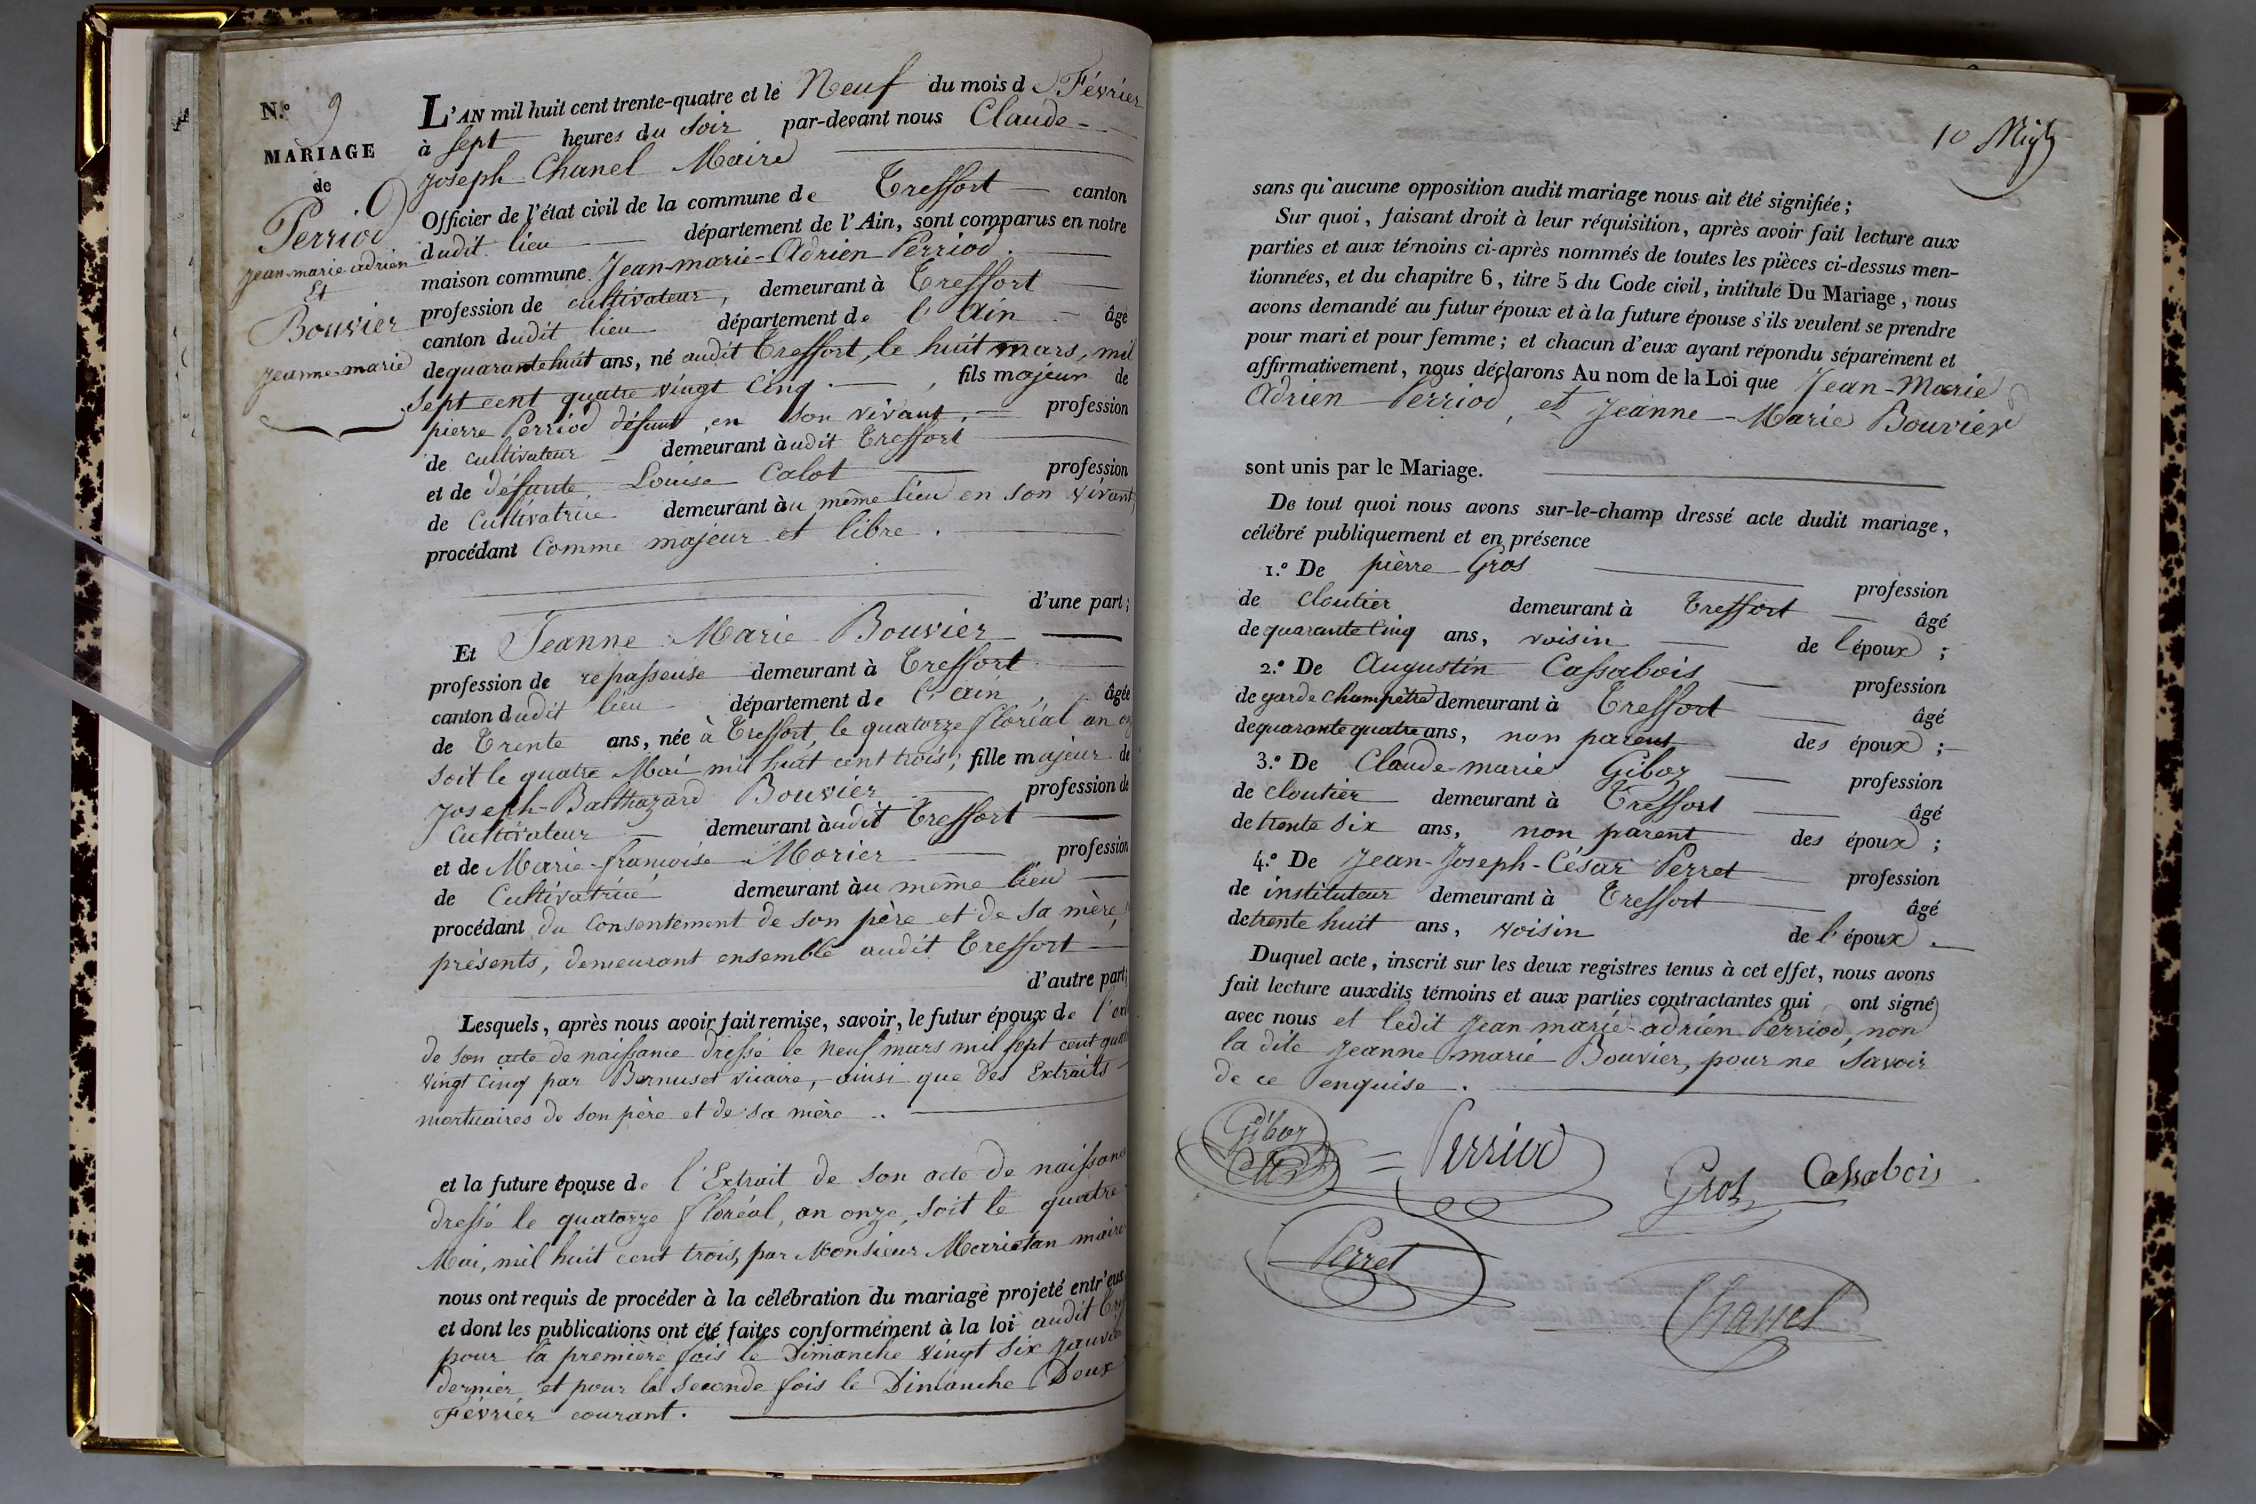 N.º 9
MARIAGE
de
Perriod
jean-marie adrien
Et
Bouvier
jeanne-marie
L'AN mil huit cent trente-quatre et le Neuf du mois de Février
à sept heures du soir par-devant nous Claude-
joseph Chanel Maire
Officier de l'état civil de la commune de Treffort canton
dudit lieu département de l'Ain, sont comparus en notre
maison commune Jean-marie-Adrien Perriod
profession de cultivateur, demeurant à Treffort
canton dudit lieu département de l'Ain âgé
de quarante huit ans, né audit Treffort, le huit mars, mil
sept cent quatre vingt cinq, fils majeur de
pierre Perriod défunt, en son vivant, profession
de cultivateur demeurant audit Treffort
et de défunte Louise Calot profession
de Cultivatrice demeurant au même lieu en son vivant,
procédant Comme majeur et libre.
d'une part;
Et Jeanne Marie Bouvier
profession de repasseuse demeurant à Treffort
canton dudit lieu département de l'ain, âgée
de Trente ans, née à Treffort le quatorze floréal an
soit le quatre Mai mil huit cent trois; fille majeur de
Joseph-Balthazard Bouvier profession de
Cultivateur demeurant audit Treffort
et de Marie-françoise Morier profession
de Cultivatrice demeurant au même lieu
procédant du Consentement de son père et de sa mère,
présents, demeurant ensemble audit Treffort
d'autre part;
Lesquels, après nous avoir fait remise, savoir, le futur époux de
de son acte de naissance dressé le neuf mars mil sept cent
vingt cinq par Bernuset vicaire, ainsi que des Extraits
mortuaires de son père et de sa mère.
et la future épouse de l'Extrait de son acte de naissance
dressé le quatorze floréal, an onze, soit le quatre
Mai, mil huit cent trois, par Monsieur Marietan maire
nous ont requis de procéder à la célébration du mariage projeté entr'eux
et dont les publications ont été faites conformément à la loi audit
pour la première fois le Dimanche vingt six Janvier
dernier, et pour la seconde fois le Dimanche Deux
Février courant.
10
sans qu'aucune opposition audit mariage nous ait été signifiée;
Sur quoi, faisant droit à leur réquisition, après avoir fait lecture aux
parties et aux témoins ci-après nommés de toutes les pièces ci-dessus men-
tionnées, et du chapitre 6, titre 5 du Code civil, intitulé Du Mariage, nous
avons demandé au futur époux et à la future épouse s'ils veulent se prendre
pour mari et pour femme; et chacun d'eux ayant répondu séparément et
affirmativement, nous déclarons Au nom de la Loi que Jean-Marie
Adrien Perriod, et Jeanne-Marie Bouvier
sont unis par le Mariage.
De tout quoi nous avons sur-le-champ dressé acte dudit mariage,
célébré publiquement et en présence
1.º De pièrre Gros profession
de Cloutier demeurant à Treffort âgé
de quarante cinq ans, voisin de l'époux;
2.º De Augustin Cassabois profession
de garde champêtre demeurant à Treffort âgé
de quarante quatre ans, non parent des époux;
3.º De Claude-marie Giboz profession
de cloutier demeurant à Treffort âgé
de trente six ans, non parent des époux;
4.º De Jean-Joseph-César Perret profession
de instituteur demeurant à Treffort âgé
de trente huit ans, voisin de l'époux.
Duquel acte, inscrit sur les deux registres tenus à cet effet, nous avons
fait lecture auxdits témoins et aux parties contractantes qui ont signé
avec nous et ledit Jean marie adrién Perriod, non
la dite Jeanne marié Bouvier, pour ne savoir
de ce enquise.
Giboz
Perriod
Gros
Cassabois
Perret
Chanel